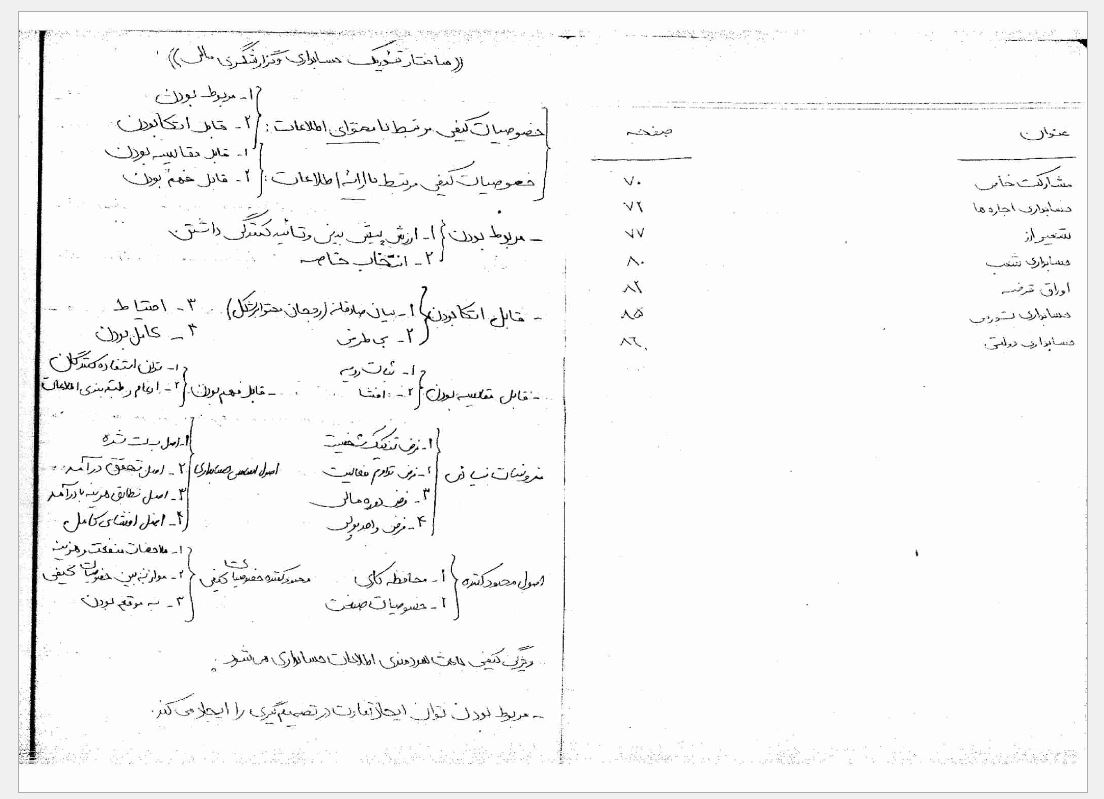 عنوان صفحه
مشارکت خاص ۷۰
حسابداری اجاره ها ۷۲
تسعیر ارز ۷۷
حسابداری شعب ۸۰
اوراق قرضه ۸۲
حسابداری تورمی ۸۵
حسابداری دولتی ۸۶
((ساختار تئوریک حسابداری و گزارشگری مالی))
۱- مربوط بودن
خصوصیات کیفی مرتبط با محتوای اطلاعات: ۲- قابل اتکا بودن
۱- قابل مقایسه بودن
خصوصیات کیفی مرتبط با ارائه اطلاعات: ۲- قابل فهم بودن
- مربوط بودن ۱- ارزش پیش بینی و تأئید کنندگی داشتن
۲- انتخاب خاصه
- قابل اتکا بودن ۱- بیان صادقانه (رجحان محتوا بر شکل) ۳- احتیاط
۲- بی طرفی ۴- کامل بودن
۱- ثبات رویه ۱- توان استفاده کنندگان
- قابل مقایسه بودن ۲- افشا - قابل فهم بودن: ۲- ادغام و طبقه بندی اطلاعات
۱- فرض تفکیک شخصیت ۱- اصل بهای تمام شده
مفروضات ۲- فرض تداوم فعالیت اصول اساسی حسابداری ۲- اصل تحقق درآمد
۳- فرض دوره مالی ۳- اصل تطابق هزینه با درآمد
۴- فرض واحد پولی ۴- اصل افشای کامل
۱- ملاحظات منفعت و هزینه
اصول محدود کننده ۱- محافظه کاری محدود کننده خصوصیات کیفی ۲- موازنه بین خصوصیات کیفی
۲- خصوصیات صنعت ۳- به موقع بودن
ویژگی کیفی باعث سودمندی اطلاعات حسابداری می شود.
- مربوط بودن توان ایجاد تفاوت در تصمیم گیری را ایجاد می کند.